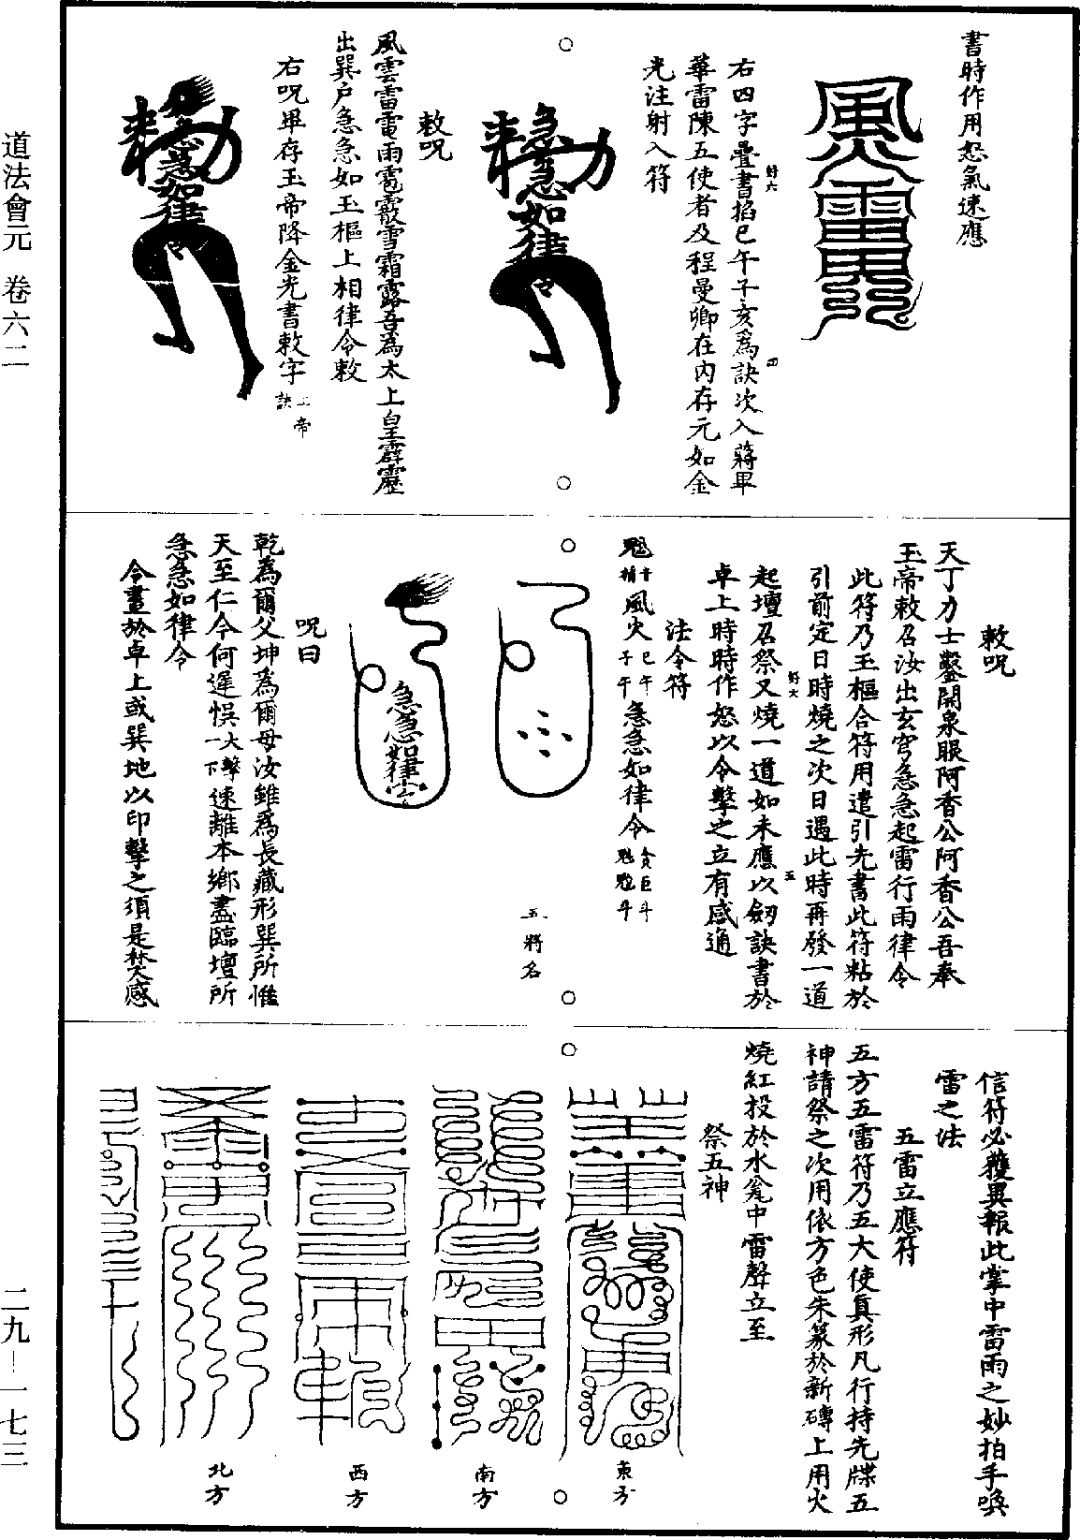 道法會元 卷六二
二九—一七三
書時作用怒氣速應
風火雷雨
右四字疊書掐巳午子亥為訣次入蔣畢
華雷陳五使者及程曼卿在內存元如金
光注射入符
敕
急急如律令
敕咒
風雲雷電雨雹霰雪霜露吾為太上皇霹靂
出巽户急急如玉樞上相律令敕
右咒畢存玉帝降金光書敕字
上帝
訣
敕
急急如律令
敕咒
天丁力士鑿開泉眼阿香公阿香公吾奉
玉帝敕召汝出玄穹急急起雷行雨律令
此符乃玉樞合符用遣引先書此符粘於
引前定日時燒之次日遇此時再發一道
起壇召祭又燒一道如未應以劒訣書於
卓上時時作怒以令擊之立有感通
法令符
風火巳午子午急急如律令
五將名
急急如律令
咒曰
乾為爾父坤為爾母汝雖為長藏形巽所惟
天至仁今何遲悞大擊一下速離本鄉盡臨壇所
急急如律令
令畫於卓上或巽地以印擊之須是焚感
信符必獲異報此掌中雷雨之妙拍手喚
雷之法
五雷立應符
五方五雷符乃五大使真形凡行持先牒五
神請祭之次用依方色朱篆於新磚上用火
燒紅投於水瓮中雷聲立至
祭五神
東方
南方
西方
北方